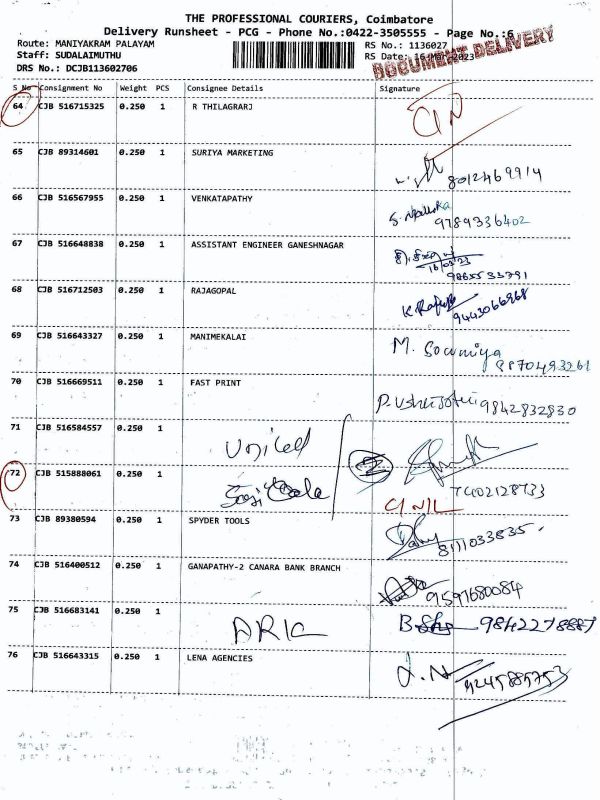 THE PROFESSIONAL COURIERS, Coimbatore
Delivery Runsheet - PCG - Phone No.:0422-3505555 - Page No.:6
Route: MANIYAKRAM PALAYAM
RS No.: 1136027
Staff: SUDALAIMUTHU
RS Date: 16 Mar 2023
DOCUMENT DELIVERY
DRS No.: DCJB113602706
S No Consignment No Weight PCS Consignee Details Signature
64 CJB 516715325 0.250 1 R THILAGRARJ
65 CJB 89314601 0.250 1 SURIYA MARKETING
8012469914
66 CJB 516567955 0.250 1 VENKATAPATHY
9789336402
67 CJB 516648838 0.250 1 ASSISTANT ENGINEER GANESHNAGAR
16/03/23
9865533791
68 CJB 516712503 0.250 1 RAJAGOPAL
9443066968
69 CJB 516643327 0.250 1 MANIMEKALAI
M. Sowmiya
9870493261
70 CJB 516669511 0.250 1 FAST PRINT
9842832830
71 CJB 516584557 0.250 1
Unicel
72 CJB 515888061 0.250 1
7402128733
73 CJB 89380594 0.250 1 SPYDER TOOLS
8111033835
74 CJB 516400512 0.250 1 GANAPATHY-2 CANARA BANK BRANCH
9591680084
75 CJB 516683141 0.250 1
ARIC
9842278887
76 CJB 516643315 0.250 1 LENA AGENCIES
9245885753